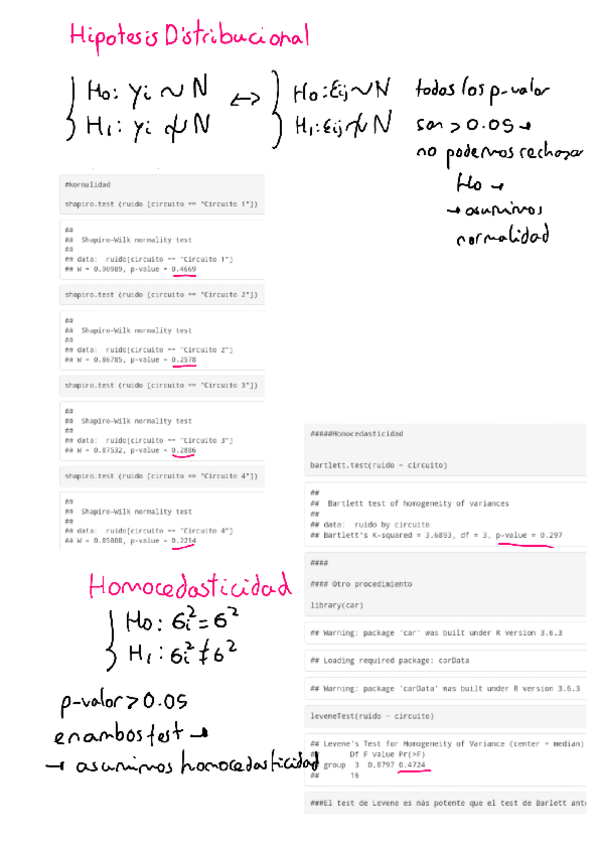 Hipotesis Distribucional
Ho: yi ~ N ↔ Ho: εij ~ N todos los p-valor
H1: yi ≁ N H1: εij ≁ N son > 0.05 →
no podemos rechazar
Ho →
→ asumimos
normalidad
#Normalidad
shapiro.test (ruido [circuito == "Circuito 1"])
##
## Shapiro-Wilk normality test
##
## data: ruido[circuito == "Circuito 1"]
## W = 0.90989, p-value = 0.4669
shapiro.test (ruido [circuito == "Circuito 2"])
##
## Shapiro-Wilk normality test
##
## data: ruido[circuito == "Circuito 2"]
## W = 0.86785, p-value = 0.2578
shapiro.test (ruido [circuito == "Circuito 3"])
##
## Shapiro-Wilk normality test
##
## data: ruido[circuito == "Circuito 3"]
## W = 0.87532, p-value = 0.2886
shapiro.test (ruido [circuito == "Circuito 4"])
##
## Shapiro-Wilk normality test
##
## data: ruido[circuito == "Circuito 4"]
## W = 0.85808, p-value = 0.2214
Homocedasticidad
Ho: σi² = σ²
H1: σi² ≠ σ²
p-valor > 0.05
en ambos test →
→ asumimos homocedasticidad
#####Homocedasticidad
bartlett.test(ruido ~ circuito)
##
## Bartlett test of homogeneity of variances
##
## data: ruido by circuito
## Bartlett's K-squared = 3.6893, df = 3, p-value = 0.297
####
#### Otro procedimiento
library(car)
## Warning: package 'car' was built under R version 3.6.3
## Loading required package: carData
## Warning: package 'carData' was built under R version 3.6.3
leveneTest(ruido ~ circuito)
## Levene's Test for Homogeneity of Variance (center = median)
## Df F value Pr(>F)
group 3 0.8797 0.4724
## 16
###El test de Levene es más potente que el test de Barlett ant